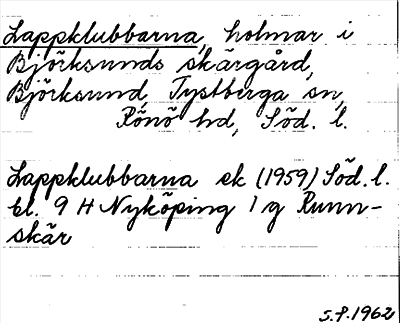 Lappklubbarna, holmar i
Björksunds skärgård,
Björksund, Tystberga sn,
Rönö hd, Söd. l.
Lappklubbarna ek (1959) Söd. l.
bl. 9 H Nyköping 1 g Runn-
skär
S.P. 1962